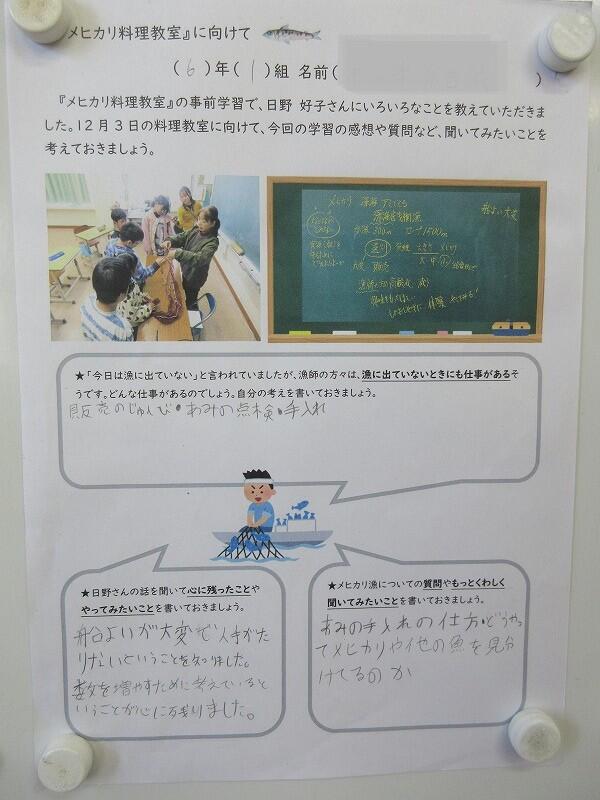 『メヒカリ料理教室』に向けて
(6)年(1)組 名前( )
『メヒカリ料理教室』の事前学習で、日野 好子さんにいろいろなことを教えていただきま
した。12月3日の料理教室に向けて、今回の学習の感想や質問など、聞いてみたいことを
考えておきましょう。
メヒカリ 深海
船よい 大変
水深 300m
1500m
★「今日は漁に出ていない」と言われていましたが、漁師の方々は、漁に出ていないときにも仕事があるそ
うです。どんな仕事があるのでしょう。自分の考えを書いておきましょう。
販売のじゅんび・あみの点検・手入れ
★日野さんの話を聞いて心に残ったことや
やってみたいことを書いておきましょう。
船よいが大変で人手がた
りないということを知りました。
数を増やすために考えていると
いうことが心に残りました。
★メヒカリ漁についての質問やもっとくわしく
聞いてみたいことを書いておきましょう。
あみの手入れの仕方・どうやっ
てメヒカリや他の魚を見分
けてるのか